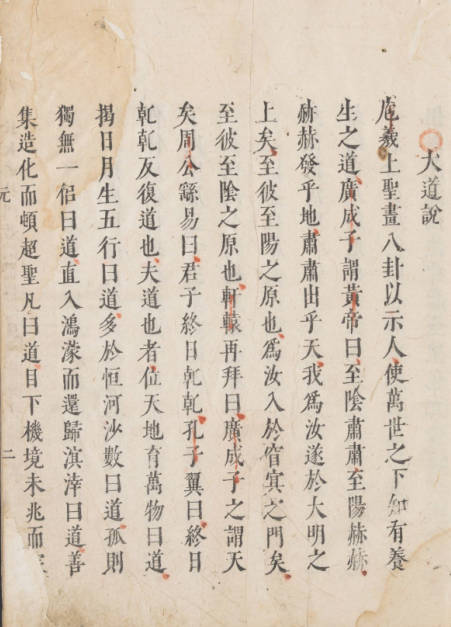 大道說
庖羲上聖畫八卦以示人使萬世之下知有養
生之道廣成子謂黃帝曰至陰肅肅至陽赫赫
赫赫發乎地肅肅出乎天我爲汝遂於大明之
上矣至彼至陽之原也爲汝入於窅冥之門矣
至彼至陰之原也軒轅再拜曰廣成子之謂天
矣周公繇易曰君子終日乾乾孔子翼曰終日
乾乾反復道也夫道也者位天地育萬物曰道
揭日月生五行曰道多於恒河沙數曰道孤則
獨無一侶曰道直入鴻濛而還歸滇涬曰道善
集造化而頓超聖凡曰道目下機境未兆而
元
二